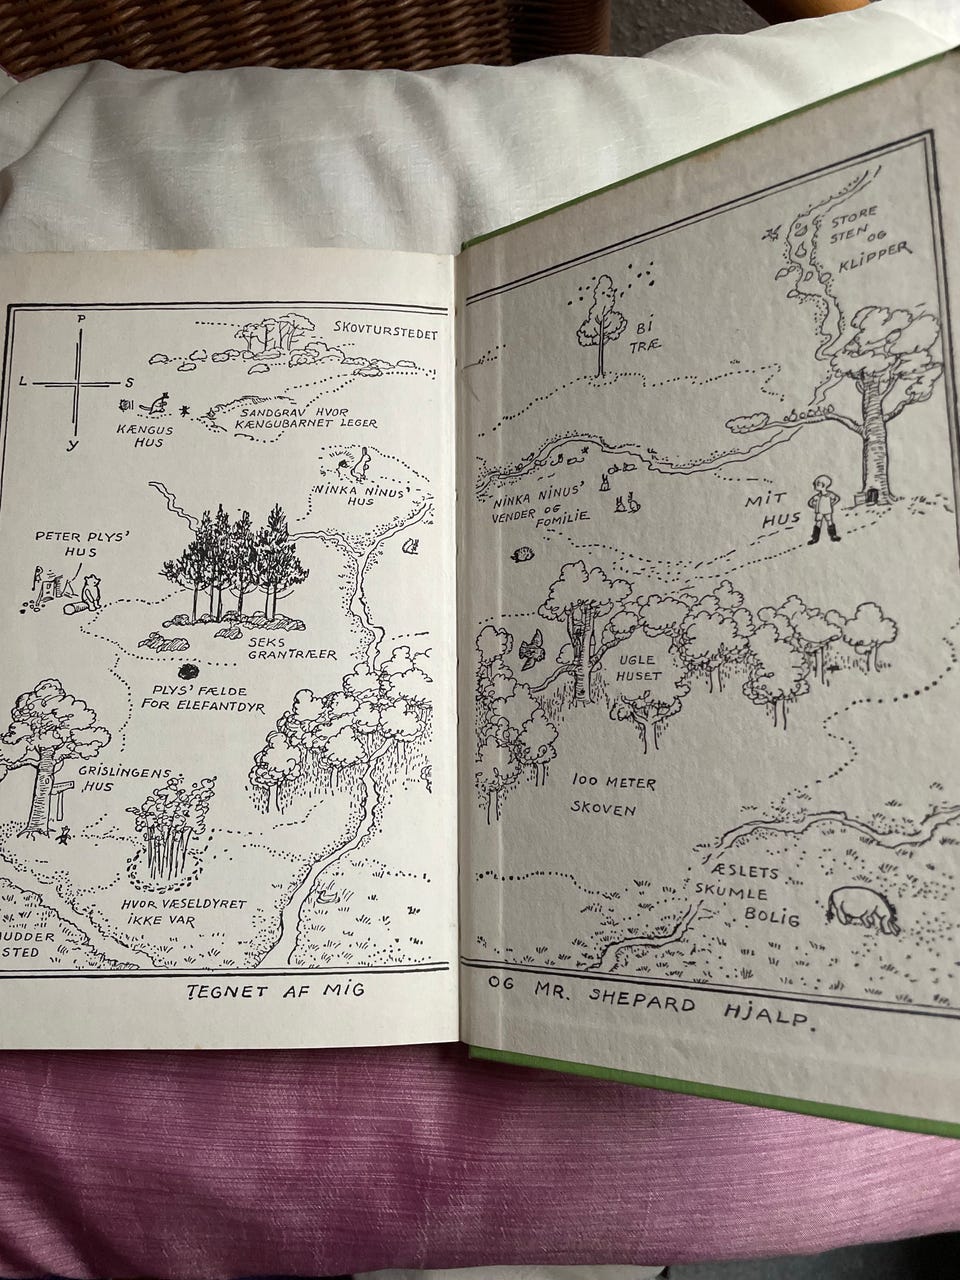 P
L
S
Y
SKOVTURSTEDET
KÆNGUS
HUS
SANDGRAV HVOR
KÆNGUBARNET LEGER
NINKA NINUS'
HUS
PETER PLYS'
HUS
SEKS
GRANTRÆER
PLYS' FÆLDE
FOR ELEFANTDYR
GRISLINGENS
HUS
HVOR VÆSELDYRET
IKKE VAR
MUDDER
STED
TEGNET AF MIG
STORE
STEN
OG
KLIPPER
BI
TRÆ
NINKA NINUS'
VENDER OG
FOMILIE
MIT
HUS
UGLE
HUSET
100 METER
SKOVEN
ÆSLETS
SKUMLE
BOLIG
OG MR. SHEPARD HJALP.